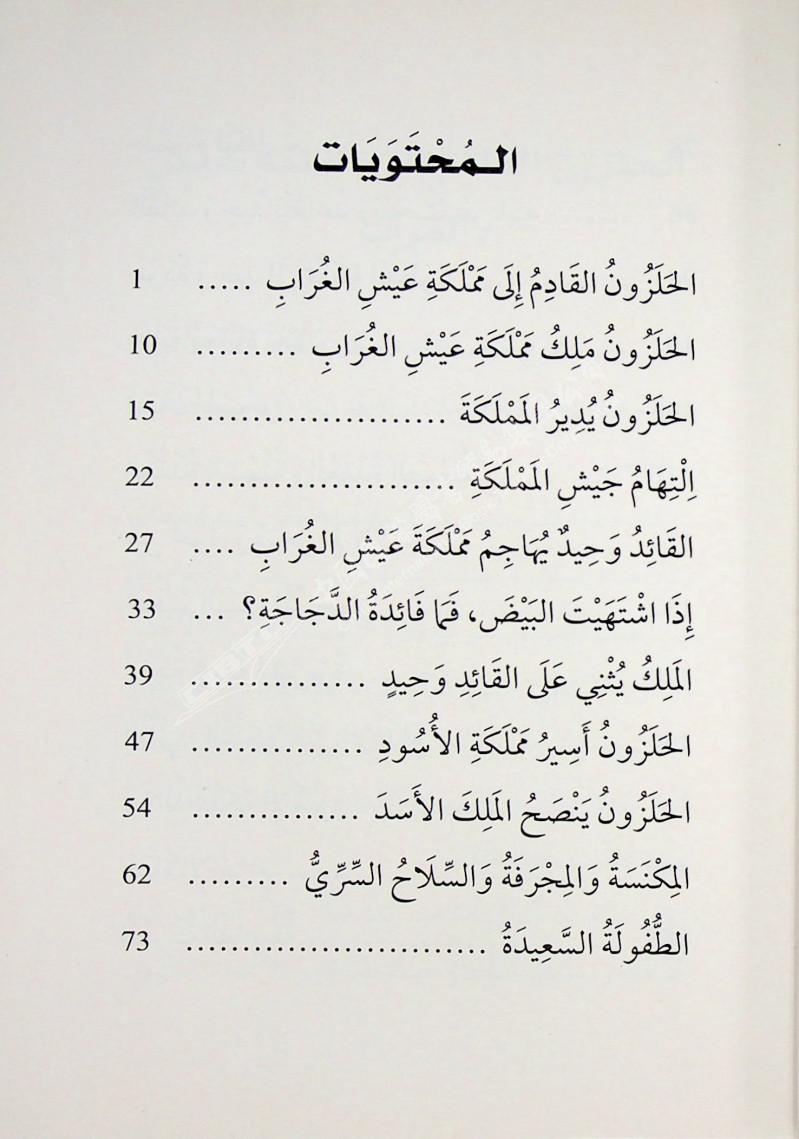 الـمُحْتَوَيَات
الحَلَزُونُ القَادِمُ إِلَى مَمْلَكَةِ عَيْشِ الغُرَابِ ..... 1
الحَلَزُونُ مَلِكُ مَمْلَكَةِ عَيْشِ الغُرَابِ ......... 10
الحَلَزُونُ يُدِيرُ المَمْلَكَةَ ...................... 15
اِلْتِهَامُ جَيْشِ المَمْلَكَةِ ....................... 22
القَائِدُ وَحِيدٌ يُهَاجِمُ مَمْلَكَةَ عَيْشِ الغُرَابِ .... 27
إِذَا اشْتَهَيْتَ البَيْضَ، فَمَا فَائِدَةُ الدَّجَاجَةِ؟ ... 33
المَلِكُ يُثْنِي عَلَى القَائِدِ وَحِيدٍ ................ 39
الحَلَزُونُ أَسِيرُ مَمْلَكَةِ الأُسُودِ ................ 47
الحَلَزُونُ يَنْصَحُ المَلِكَ الأَسَدَ ............... 54
المِكْنَسَةُ وَالمِجْرَفَةُ وَالسِّلَاحُ السِّرِّيُّ ......... 62
الطُّفُولَةُ السَّعِيدَةُ ........................... 73